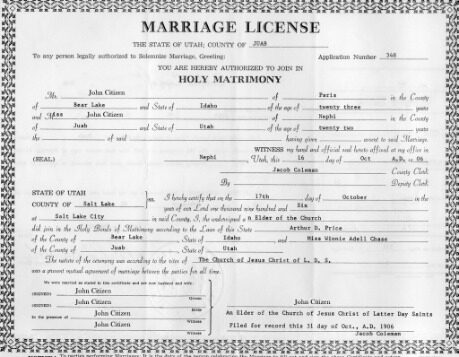 MARRIAGE LICENSE
THE STATE OF UTAH; COUNTY OF JUAB
To any person legally authorized to Solemnize Marriage, Greeting: Application Number 348
YOU ARE HEREBY AUTHORIZED TO JOIN IN
HOLY MATRIMONY
Mr. John Citizen of Paris in the County
of Bear Lake and State of Idaho of the age of twenty three years
and Miss John Citizen of Nephi in the County
of Juab and State of Utah of the age of twenty two years
the of said having given assent to said Marriage.
WITNESS my hand and official seal hereto affixed at my office in
(SEAL) Nephi, Utah, this 16 day of Oct A.D. 06
Jacob Coleman County Clerk
By Deputy Clerk
STATE OF UTAH
COUNTY OF Salt Lake ss. I hereby certify that on the 17th day of October in the
year of our Lord one thousand nine hundred and Six
at Salt Lake City in said County, I, the undersigned a Elder of the Church
did join in the Holy Bonds of Matrimony according to the Laws of this State Arthur D. Price
of the County of Bear Lake State of Idaho and Miss Winnie Adell Chase
of the County of Juab State of Utah
The nature of the ceremony was according to the rites of The Church of Jesus Christ of L. D. S.
was a present mutual agreement of marriage between the parties for all time.
We were married as stated in this certificate and are now husband and wife.
(SIGNED) John Citizen
Groom
(SIGNED) John Citizen John Citizen
Bride
In the presence of John Citizen An Elder of the Church of Jesus Christ of Latter Day Saints
Witness
John Citizen Filed for record this 31 day of Oct., A.D. 1906
Witness Jacob Coleman